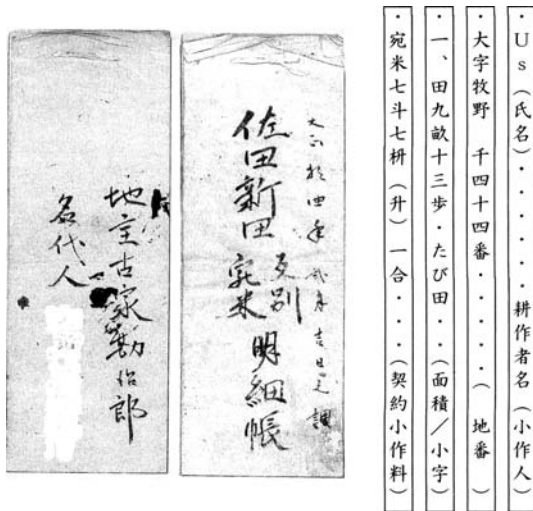 ・Us（氏名）・・・・・・耕作者名（小作人）
・大字牧野　千四十四番・・・・・（　地番　）
・一、田九畝十三歩・たび田・・（面積／小字）
・宛米七斗七枡（升）一合・・・（契約小作料）
大正拾四年　弐月吉日之調
佐田新田　反別　宛米　明細帳
地主古家勘治郎
名代人